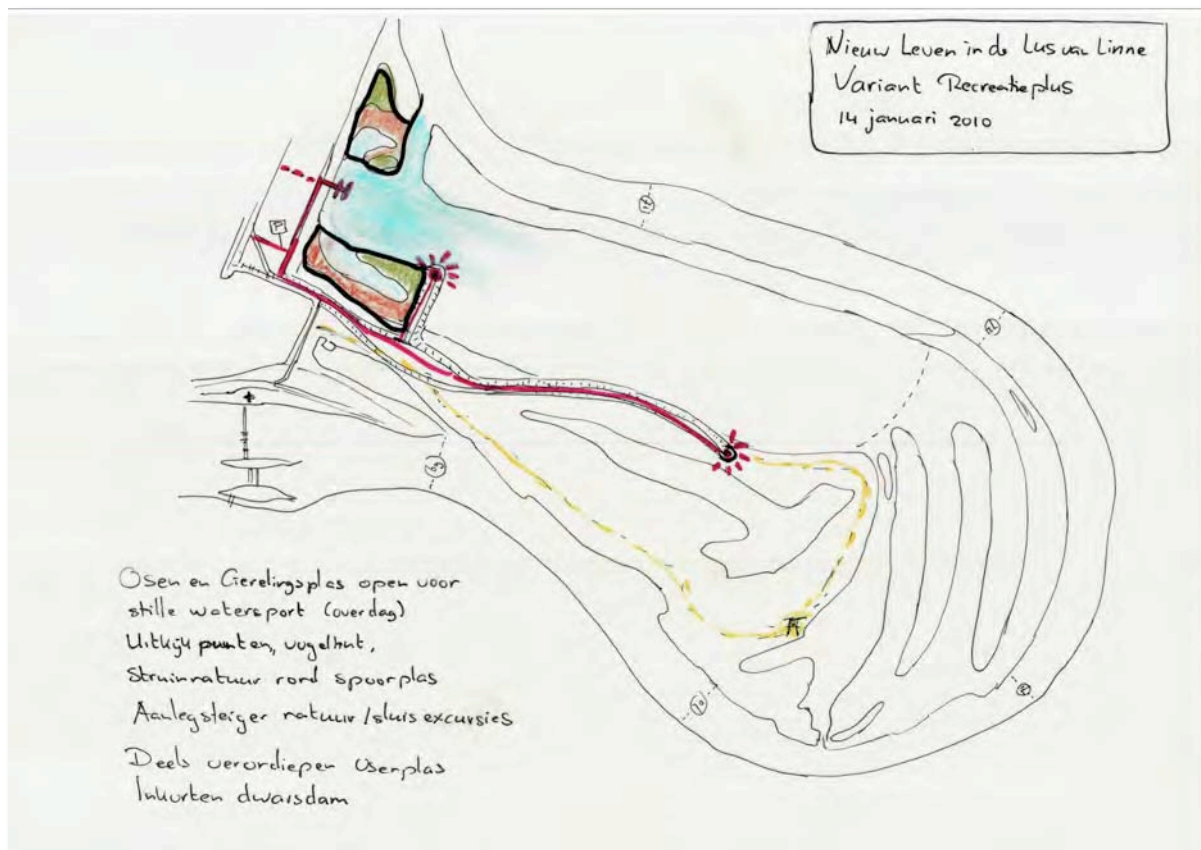 Nieuw Leven in de Lus van Linne
Variant Recreatieplus
14 januari 2010
P
71
72
69
70
Osen en Gerelingsplas open voor
stille watersport (overdag)
Uitkijk punten, vogelhut,
Struinnatuur rond spoorplas
Aanlegsteiger natuur/sluis excursies
Deels verondiepen Osenplas
Inkorten dwarsdam